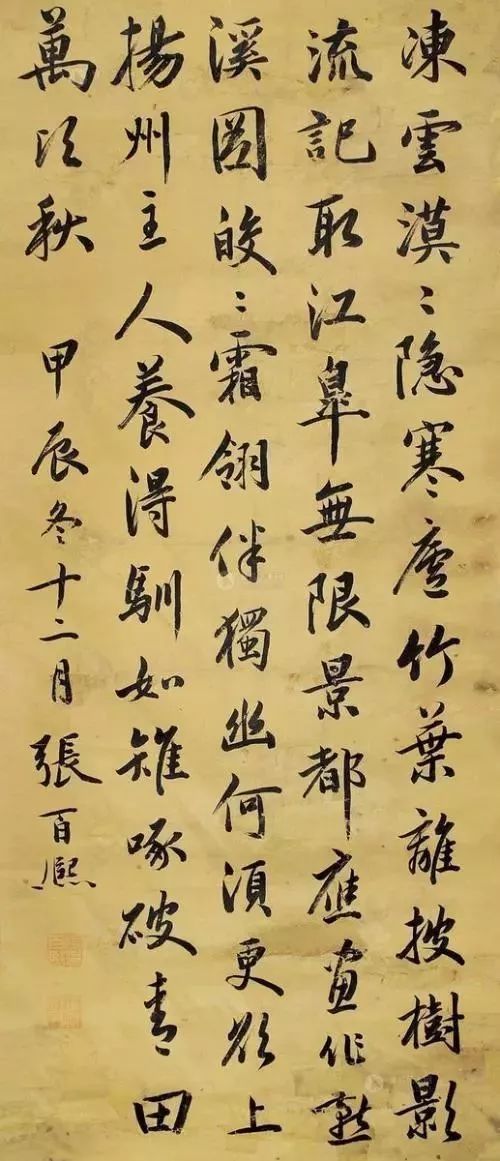 凍雲漠〻隱寒廬竹葉離披樹影
流記取江皋無限景都應畫作剡
溪圖皎〻霜翎伴獨幽何須更欲上
揚州主人養得馴如雉啄破青田
萬頃秋 甲辰冬十二月張百熙